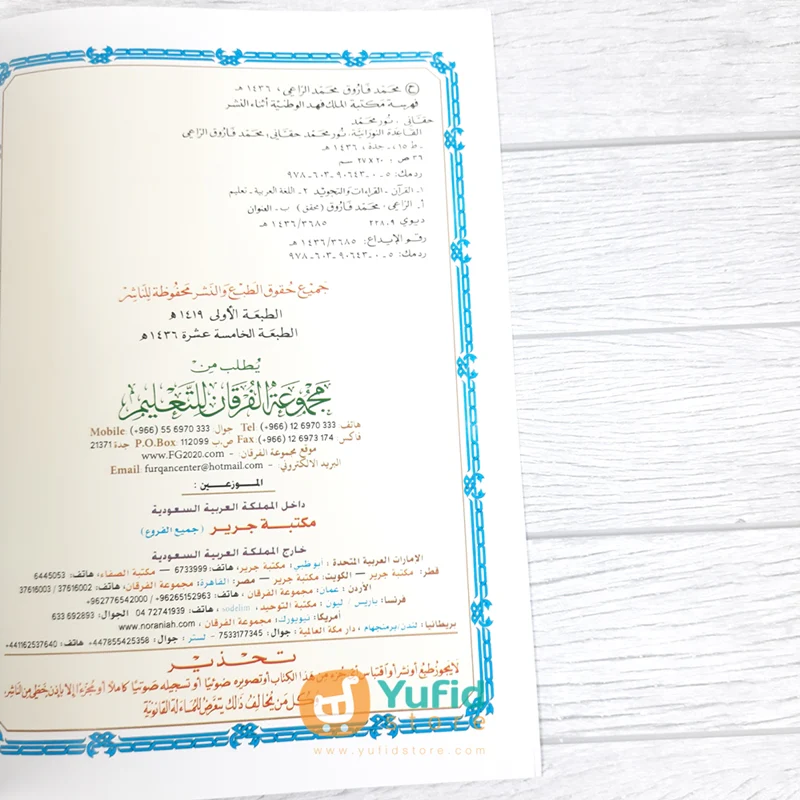 ح محمد فاروق محمد الراعي ، ١٤٣٦ هـ
فهرسة مكتبة الملك فهد الوطنية أثناء النشر
حقاني ، نور محمد
القاعدة النورانية. نور محمد حقاني؛ محمد فاروق الراعي
. - ط ١٥. - جدة ، ١٤٣٦ هـ
٣٦ ص ؛ ٢٠ × ٢٧ سم
ردمك: ٥ - ٠ - ٩٠٦٤٣ - ٦٠٣ - ٩٧٨
١. القرآن - القراءات والتجويد ٢. اللغة العربية - تعليم
أ. الراعي، محمد فاروق (محقق) ب. العنوان
ديوي ٢٢٨,٩ ١٤٣٦/٣٦٨٥
رقم الإيداع: ١٤٣٦/٣٦٨٥ هـ
ردمك: ٥ - ٠ - ٩٠٦٤٣ - ٦٠٣ - ٩٧٨
جميع حقوق الطبع والنشر محفوظة للناشر
الطبعة الأولى ١٤١٩ هـ
الطبعة الخامسة عشرة ١٤٣٦ هـ
يُطلب من
مجموعة الفرقان للتعليم
هاتف: Tel (+966) 12 6970 333 جوال: Mobile: (+966) 55 6970 333
فاكس Fax (+966) 12 6973 174 ص.ب P.O.Box: 112099 جدة 21371
موقع مجموعة الفرقان: - www.FG2020.com
البريد الالكتروني: - Email: furqancenter@hotmail.com
الموزعين :
داخل المملكة العربية السعودية
مكتبة جرير (جميع الفروع)
خارج المملكة العربية السعودية
الامارات العربية المتحدة : أبوظبي: مكتبة جرير، هاتف: 6733999 - مكتبة الصفاء، هاتف: 6445053
قطر: مكتبة جرير – الكويت: مكتبة جرير – مصر: القاهرة: مجموعة الفرقان، هاتف: 37616002 / 37616003
الأردن: عمان: مجموعة الفرقان ، هاتف: 96265152963+ / 962776542000+
فرنسا: باريس ، ليون : مكتبة التوحيد، sodelim ، هاتف: 04 72741939 الجوال: 633 692893
أمريكا: نيويورك: مجموعة الفرقان ، www.noraniah.com
بريطانيا: لندن: برمنجهام ، دار مكة العالمية : جوال: 7533177345 - لستر : جوال: 447855425358+ هاتف: 441162537640+
تحذير
لا يجوز طبع أو نشر أو اقتباس أي جزء من هذا الكتاب أو تصويره ضوئيًا أو تسجيله صوتيًا كاملًا أو مجزءًا إلا بإذن خطي من الناشر،
كل من يخالف ذلك يتعرض للمساءلة القانونية
Yufid
store
www.yufidstore.com